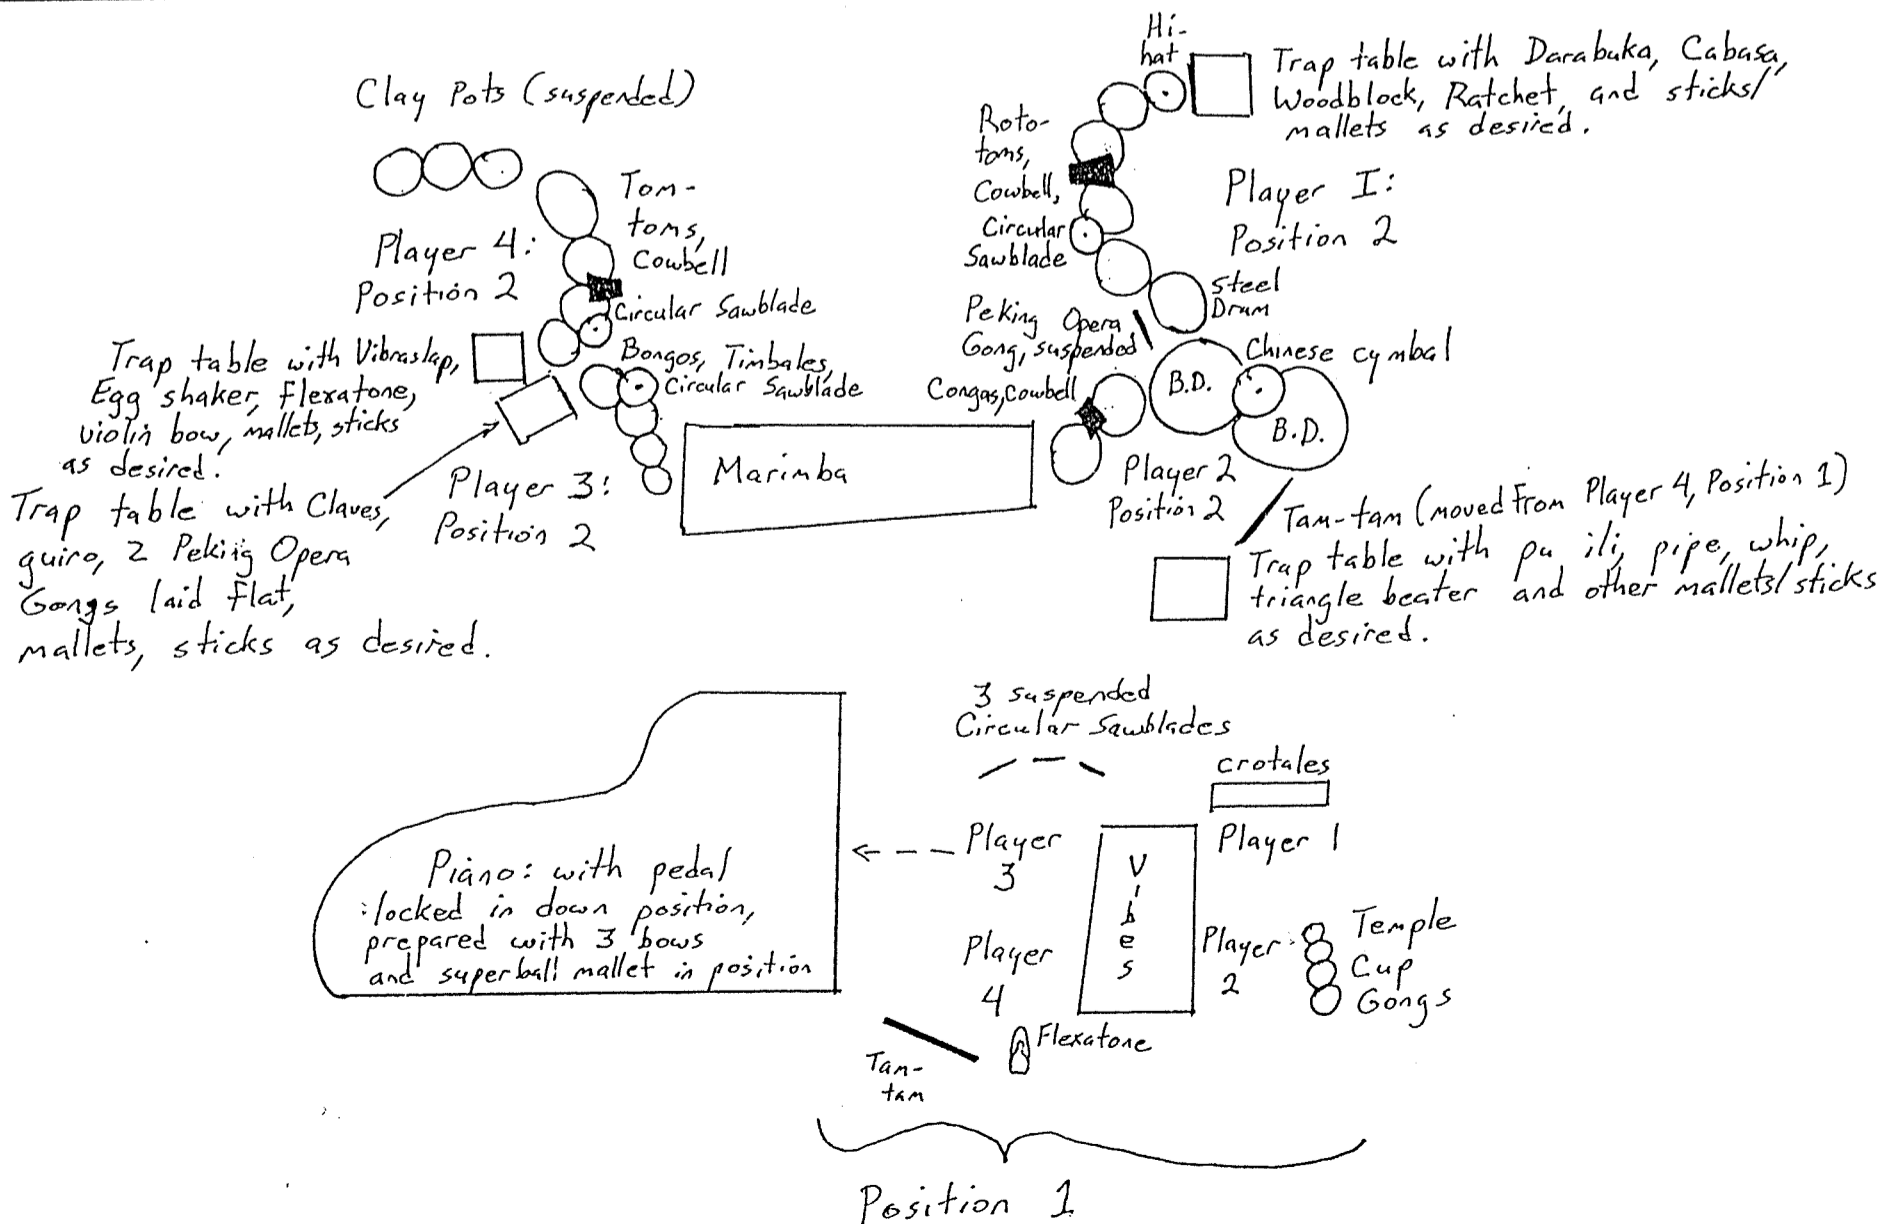 Clay Pots (suspended)
Player 4:
Position 2
Tom-
toms,
Cowbell
Circular Sawblade
Trap table with Vibraslap,
Egg shaker, Flexatone,
violin bow, mallets, sticks
as desired.
Bongos, Timbales,
Circular Sawblade
Trap table with Claves,
guiro, 2 Peking Opera
Gongs laid flat,
mallets, sticks as desired.
Player 3:
Position 2
Marimba
Hi-
hat
Trap table with Darabuka, Cabasa,
Woodblock, Ratchet, and sticks/
mallets as desired.
Roto-
toms,
Cowbell,
Circular
Sawblade
Player I:
Position 2
Steel
Drum
Peking Opera
Gong, suspended
Chinese cymbal
Congas, Cowbell
B.D.
B.D.
Player 2
Position 2
Tam-tam (moved from Player 4, Position 1)
Trap table with pu ili, pipe, whip,
triangle beater and other mallets/sticks
as desired.
3 suspended
Circular Sawblades
crotales
Player 1
Player
3
Vibes
Piano: with pedal
locked in down position,
prepared with 3 bows
and superball mallet in position
Player
4
Player
2
Temple
Cup
Gongs
Flexatone
Tam-
tam
Position 1